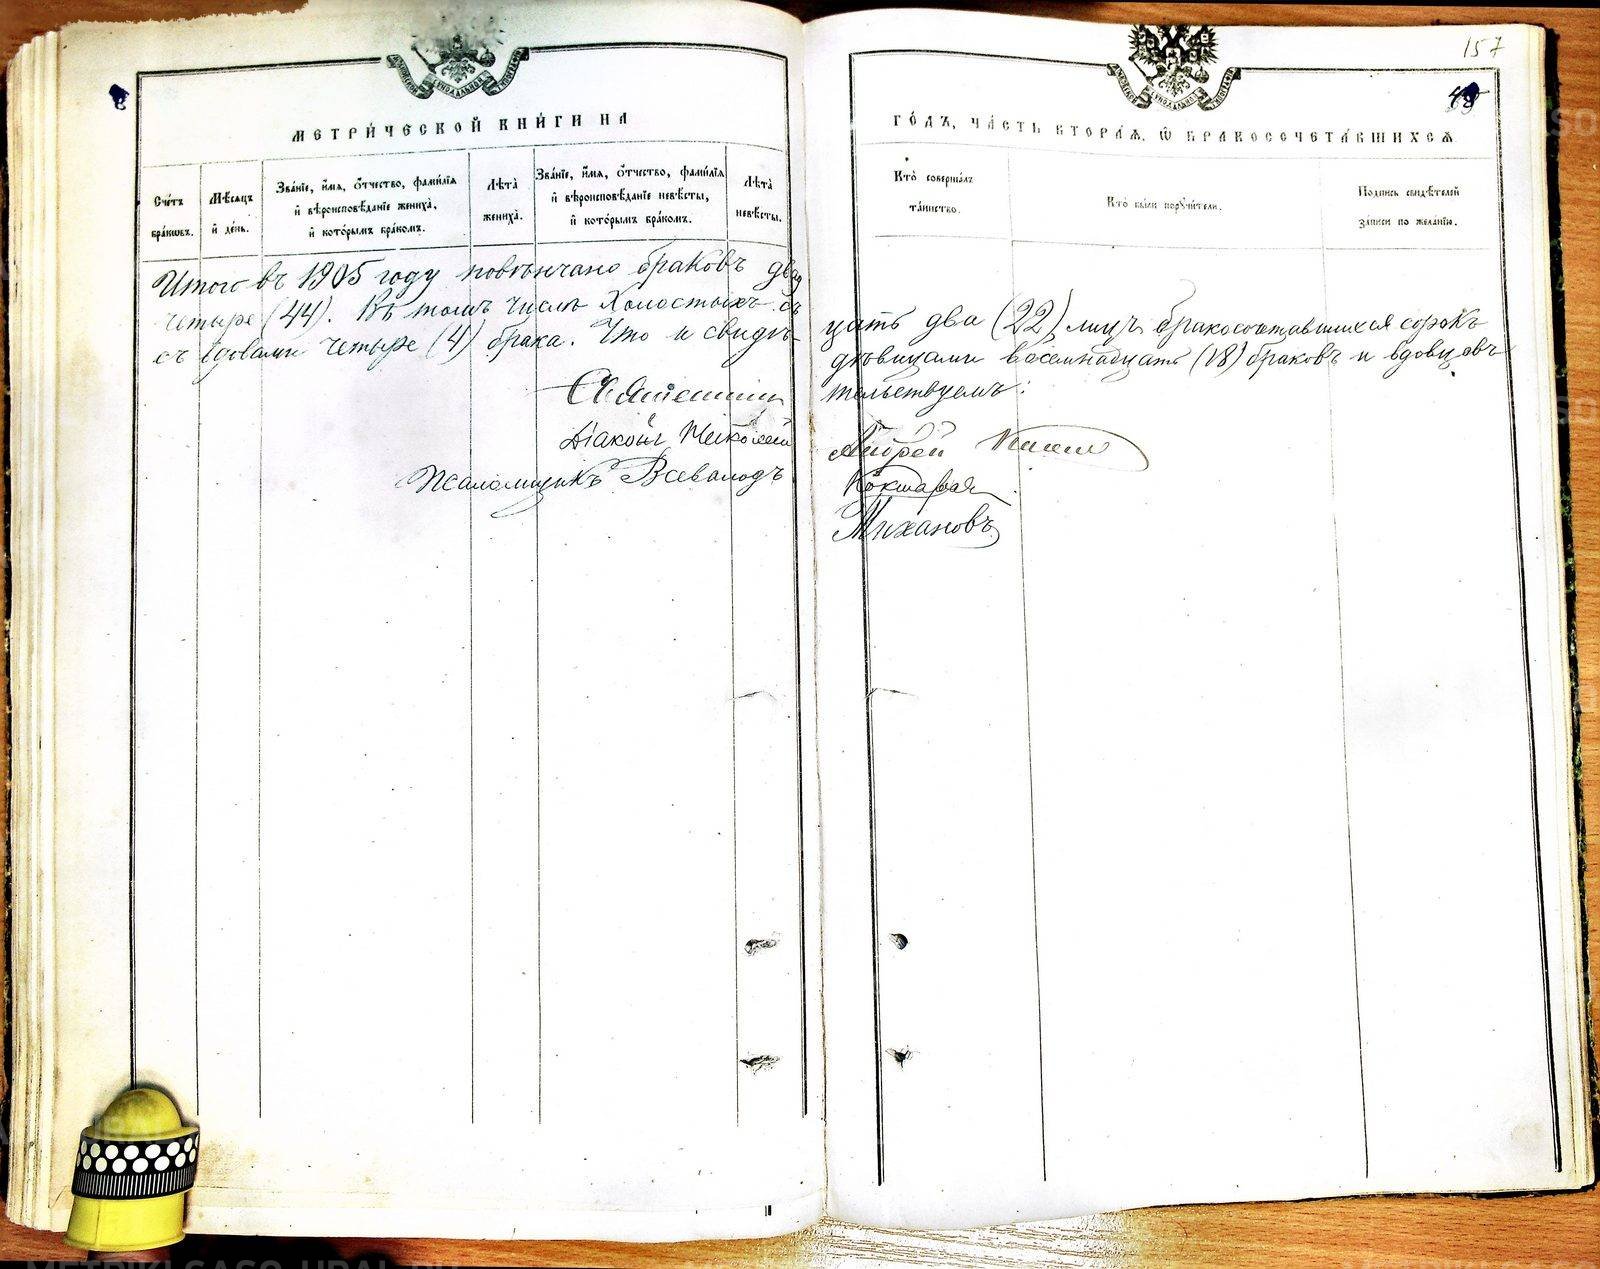 157
МЕТРИ́ЧЕСКОЙ КНИ́ГИ НА
ГО́ДЪ, ЧА́СТЬ ВТОРА́Я, Ѡ҆ БРАКОСОЧЕТА́ВШИХСЯ
Сче́тъ бра́ковъ.
Мѣ́сяцъ и҆ де́нь.
Зва́нїе, и҆́мя, ѻ҆́тчество, фами́лїя и҆ вѣроисповѣ́данїе жениха̀, и҆ кото́рымъ бра́комъ.
Лѣта̀ жениха̀.
Зва́нїе, и҆́мя, ѻ҆́тчество, фами́лїя и҆ вѣроисповѣ́данїе невѣ́сты, и҆ кото́рымъ бра́комъ.
Лѣта̀ невѣ́сты.
Кто̀ соверша́лъ та́инство.
Кто̀ бы́ли поручи́тели.
Подпись свидѣ́телей за́писи по жела́нїю.
Итого въ 1905 году повѣнчано браковъ двад цать два (22) лицъ бракосочетавшихся сорокъ
четыре (44). Въ томъ числѣ холостыхъ съ дѣвицами восемнадцать (18) браковъ и вдовцовъ
съ вдовами четыре (4) брака. Что и свидѣ- тельствуемъ:
Священникъ Андрей
Діаконъ Николай Кокшаровъ
Псаломщикъ Всеволодъ Тихановъ